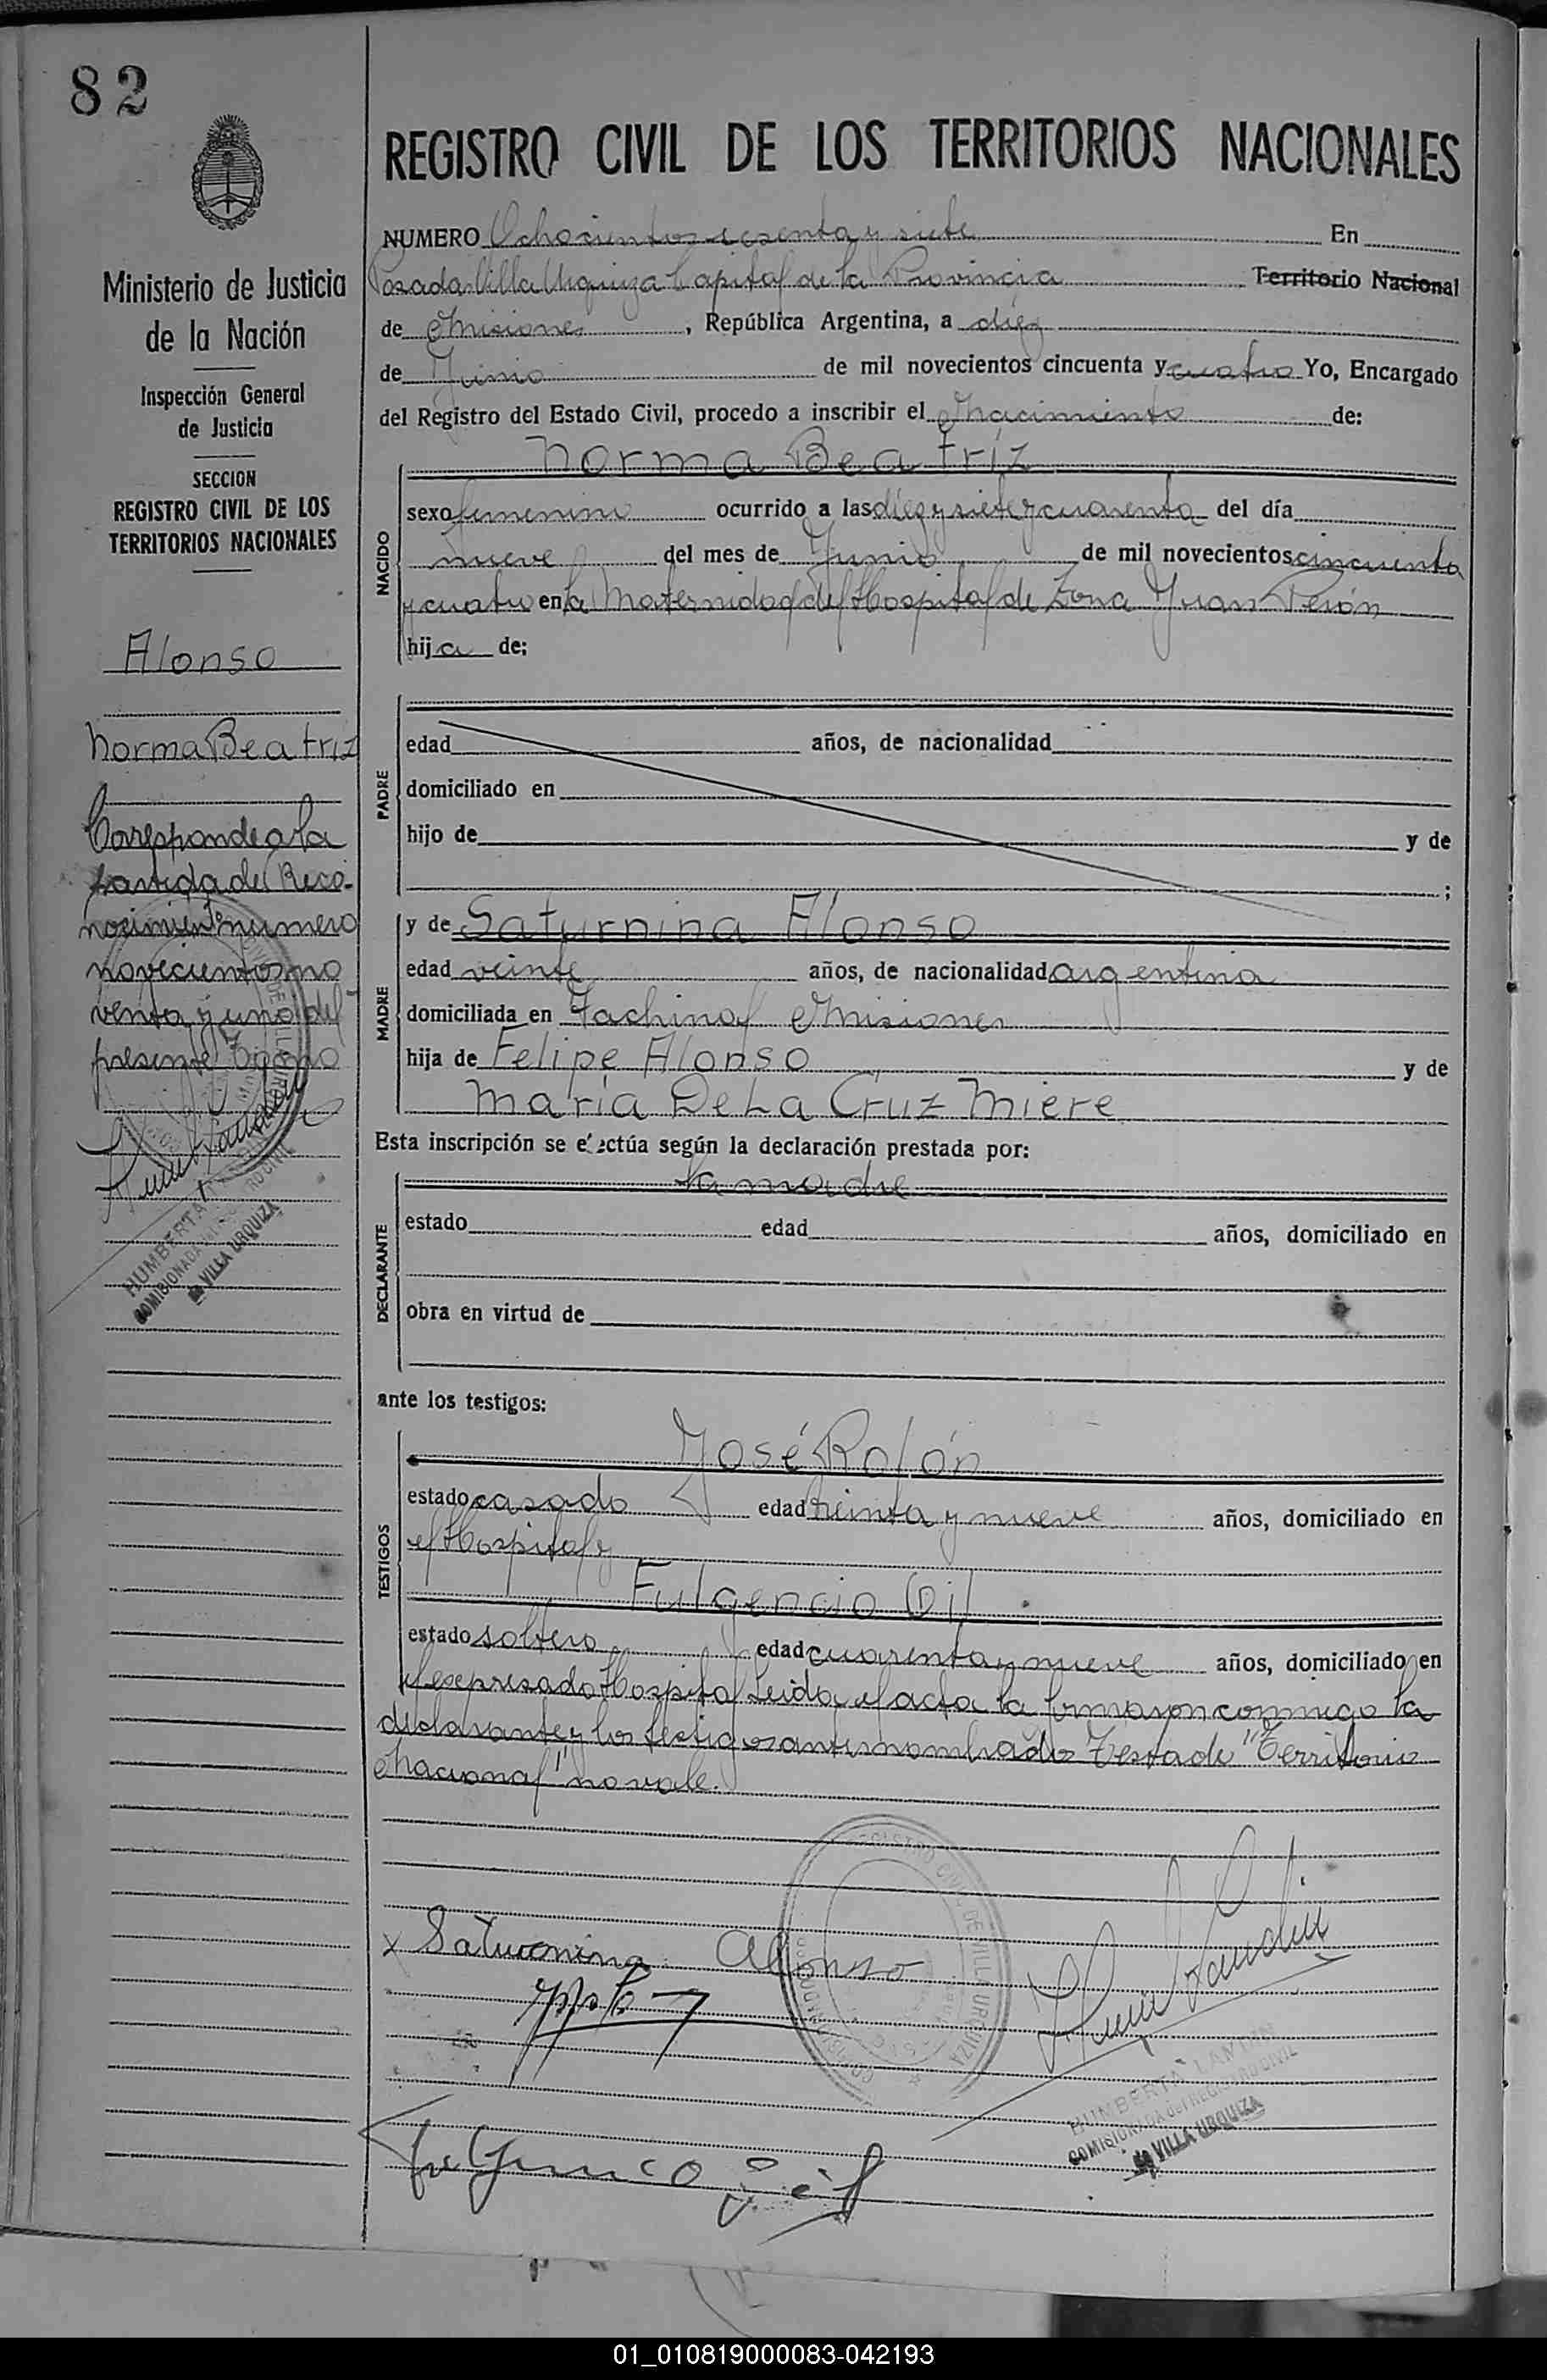 82
REGISTRO CIVIL DE LOS TERRITORIOS NACIONALES
NUMERO Ochocientos sesenta y siete En
Posadas Villa Urquiza Capital de la Provincia Territorio Nacional
de Misiones, República Argentina, a diez
de Junio de mil novecientos cincuenta y cuatro Yo, Encargado
del Registro del Estado Civil, procedo a inscribir el Nacimiento de:
Norma Beatríz
NACIDO
sexo femenino ocurrido a las diez y siete y cuarenta del día
nueve del mes de Junio de mil novecientos cincuenta
y cuatro en la Maternidad del Hospital de Zona Juan Perón
hija de:
Ministerio de Justicia
de la Nación
Inspección General
de Justicia
SECCION
REGISTRO CIVIL DE LOS
TERRITORIOS NACIONALES
Alonso
Norma Beatriz
Corresponde a la
partida del Reco-
nocimiento numero
novecientos no
venta y uno del
presente tomo
HUMBERTA
COMISIONADA
de VILLA URQUIZA
PADRE
edad años, de nacionalidad
domiciliado en
hijo de y de
;
MADRE
y de Saturnina Alonso
edad veinte años, de nacionalidad argentina
domiciliada en Fachinal Misiones
hija de Felipe Alonso y de
María De La Cruz Miere
Esta inscripción se efectúa según la declaración prestada por:
la madre
DECLARANTE
estado edad años, domiciliado en
obra en virtud de
ante los testigos:
TESTIGOS
José Rolón
estado casado edad treinta y nueve años, domiciliado en
el Hospital y
Fulgencio Gil
estado soltero edad cuarenta y nueve años, domiciliado en
el expresado Hospital Leida el acta la firmaron conmigo la
declarante y los testigos antes nombrados Testado "Territorio
Nacional" no vale.
x Saturnina Alonso
REGISTRO CIVIL DE VILLA URQUIZA
HUMBERTA LANDIN
COMISIONADA del REGISTRO CIVIL
de VILLA URQUIZA
Fulgencio Gil
01_010819000083-042193